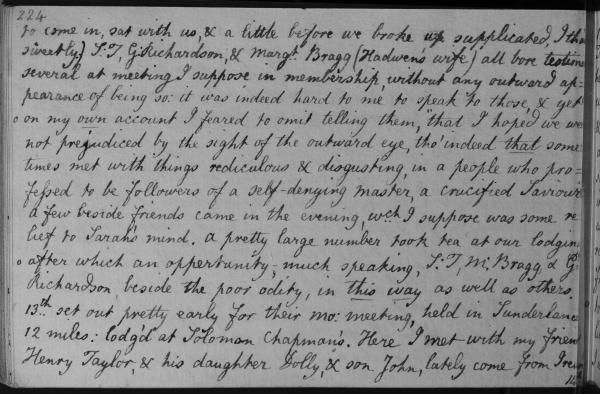 224
to come in, sat with us, & a little before we broke up supplicated, I tho
sweetly) S:T, G: Richardson, & Margt. Bragg (Hadwen's wife) all bore testimo
several at meeting I suppose in membership, without any outward ap=
pearance of being so: it was indeed hard to me to speak to those, & yet
on my own account I feared to omit telling them, that I hoped we we
not prejudiced by the sight of the outward eye, tho' indeed that some
times met with things rediculous & disgusting, in a people who pro=
fessed to be followers of a self-denying master, a crucified Saviour:
a few beside friends came in the evening, wch. I suppose was some re
lief to Sarah's mind. a pretty large number took tea at our lodging
after which an oppertunity, much speaking, S:T, M: Bragg & G:
Richardson beside the poor odity, in this way as well as others.
13th set out pretty early for their mo: meeting, held in Sunderland
12 miles: lodg'd at Soloman Chapman's. Here I met with my friend
Henry Taylor, & his daughter Dolly, & son John, lately come from
14th